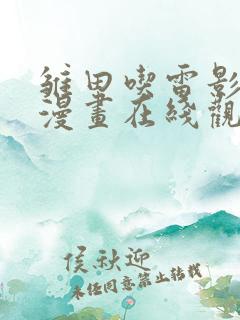 雏田喫電影
漫畫在线觀
侯秋迎
未经同意禁止转载